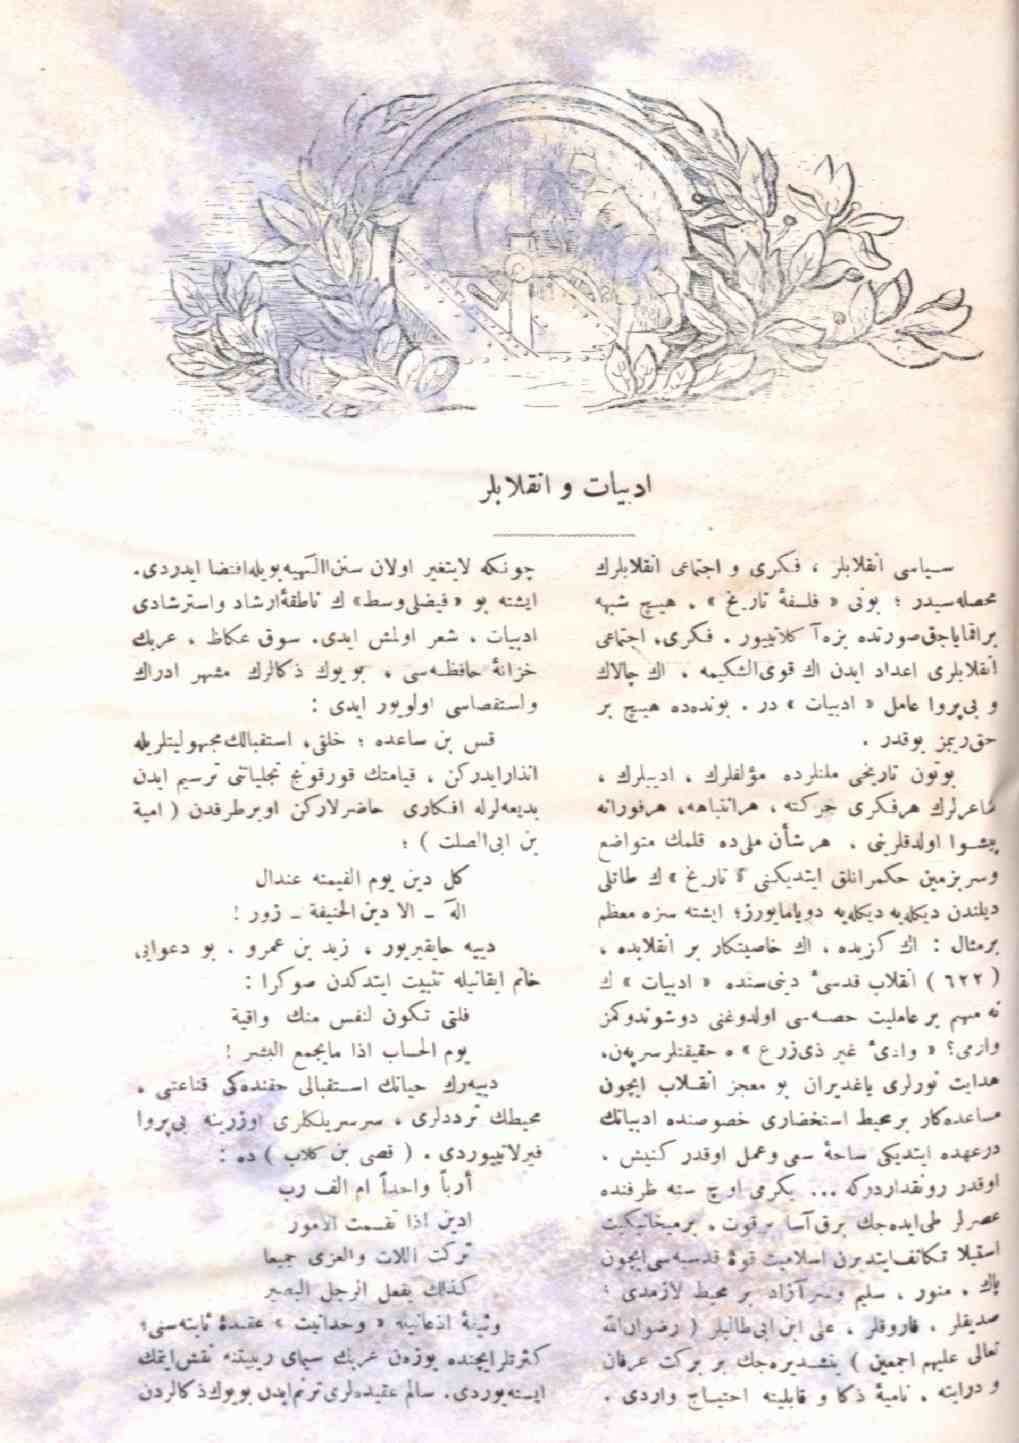 ادبیات و انقلابلر
سیاسی انقلابلر ، فکری و اجتماعی انقلابلرك
محصله‌سیدر ؛ بونی « فلسفهٔ تاریخ » ، هیچ شبهه
براقمایاجق صورتده بزه آ کلاتییور . فکری، اجتماعی
انقلابلری اعداد ایدن اك قوی‌الشکیمه ، اك چالاك
و بی‌پروا عامل « ادبیات » در . بونده‌ده هیچ بر
حق‌ریمز یوقدر .
بوتون تاریخی ملتلرده مؤلفلرك ، ادیبلرك ،
شاعرلرك هرفکری حرکته ، هرانتباهه، هرفورانه
پیشوا اولدقلرینی ، هرشأن ملی‌ده قلمك متواضع
وسربزمین حکمرانلق ایتدیکنی « تاریخ » ك طاتلی
دیلندن دیکله‌یه دیکله‌یه دویامایورز؛ ایشته سزه معظم
برمثال : اك کزیده ، اك خاصیتکار بر انقلابده ،
( ٦٢٢ ) انقلاب قدسیٔ دینی‌سنده « ادبیات » ك
نه مهم بر عاملیت حصه‌سی اولدوغنی دوشوندوکمز
وارمی؟ « وادیٔ غیر ذی‌زرع » ه حقیقتلر سرپه‌ن،
هدایت نورلری یاغدیران بو معجز انقلاب ایچون
مساعده‌کار بر محیط استحضاری خصوصنده ادبیاتك
درعهده ایتدیکی ساحهٔ سعی وعمل اوقدر کنیش ،
اوقدر رونقداردرکه ... یکرمی اوچ سنه ظرفنده
عصرلر طی‌ایده‌جك برق‌آسا برقوت ، برمیخانیکیت
استیلا تکاثف‌ایتدیرن اسلامیت قوهٔ قدسیه‌سی‌ایچون
پاك ، منور ، سلیم وسرآزاد بر محیط لازمدی ؛
صدیقلر ، فاروقلر ، علی ابن ابی‌طالبلر ( رضوان‌الله
تعالی علیهم اجمعین ) یتشدیره‌جك بر برکت عرفان
و درایته ، نامیهٔ ذکا و قابلیته احتیاج واردی .
چونکه لایتغیر اولان سنن‌الٓهیه‌بویله‌اقتضا ایدردی.
ایشته بو «فیضلی‌وسط» ك ناطقهٔ‌ارشاد واسترشادی
ادبیات ، شعر اولمش ایدی. سوق عکاظ ، عربك
خزانهٔ حافظه‌سی ، بویوك ذکالرك مشهر ادراك
واستقصاسی اولویور ایدی :
قس بن ساعده ؛ خلقی، استقبالك‌مجهولیتلریله
انذارایدرکن ، قیامتك قورقونج تجلیاتنی ترسیم ایدن
بدیعه‌لرله افکاری حاضرلارکن اوبرطرفدن ( امیة
بن ابی‌الصلت ) ؛
کل دین یوم القیمته عندال
الٓه ـ الا دین الحنیفة ـ زور !
دییه حایقیریور ، زید بن عمرو . بو دعوایی
خاتم ایقانیله تثبیت ایتدکدن صوکرا :
فلتی تکون لنفس منك واقیة
یوم الحساب اذا مایجمع البشر !
دییه‌رك حیاتك استقبالی حقنده‌کی قناعتی ،
محیطك ترددلری ، سرسریلکلری اوزرینه بی‌پروا
فیرلاتییوردی . ( قصی بن کلاب ) ده :
أرباً واحداً ام الف رب
ادین اذا تقسمت الامور
ترکت اللات والعزی جمیعا
کذلك یفعل الرجل البصیر
وثیقهٔ اذعانیله « وحدانیت » عقیدهٔ ثابته‌سنی؛
کثرتلرایچنده یوزه‌ن عربك سیمای ریبیتنه نقش‌ایتمك
ایسته‌یوردی. سالم عقیده‌لری ترنم‌ایدن بویوك‌ذکالردن